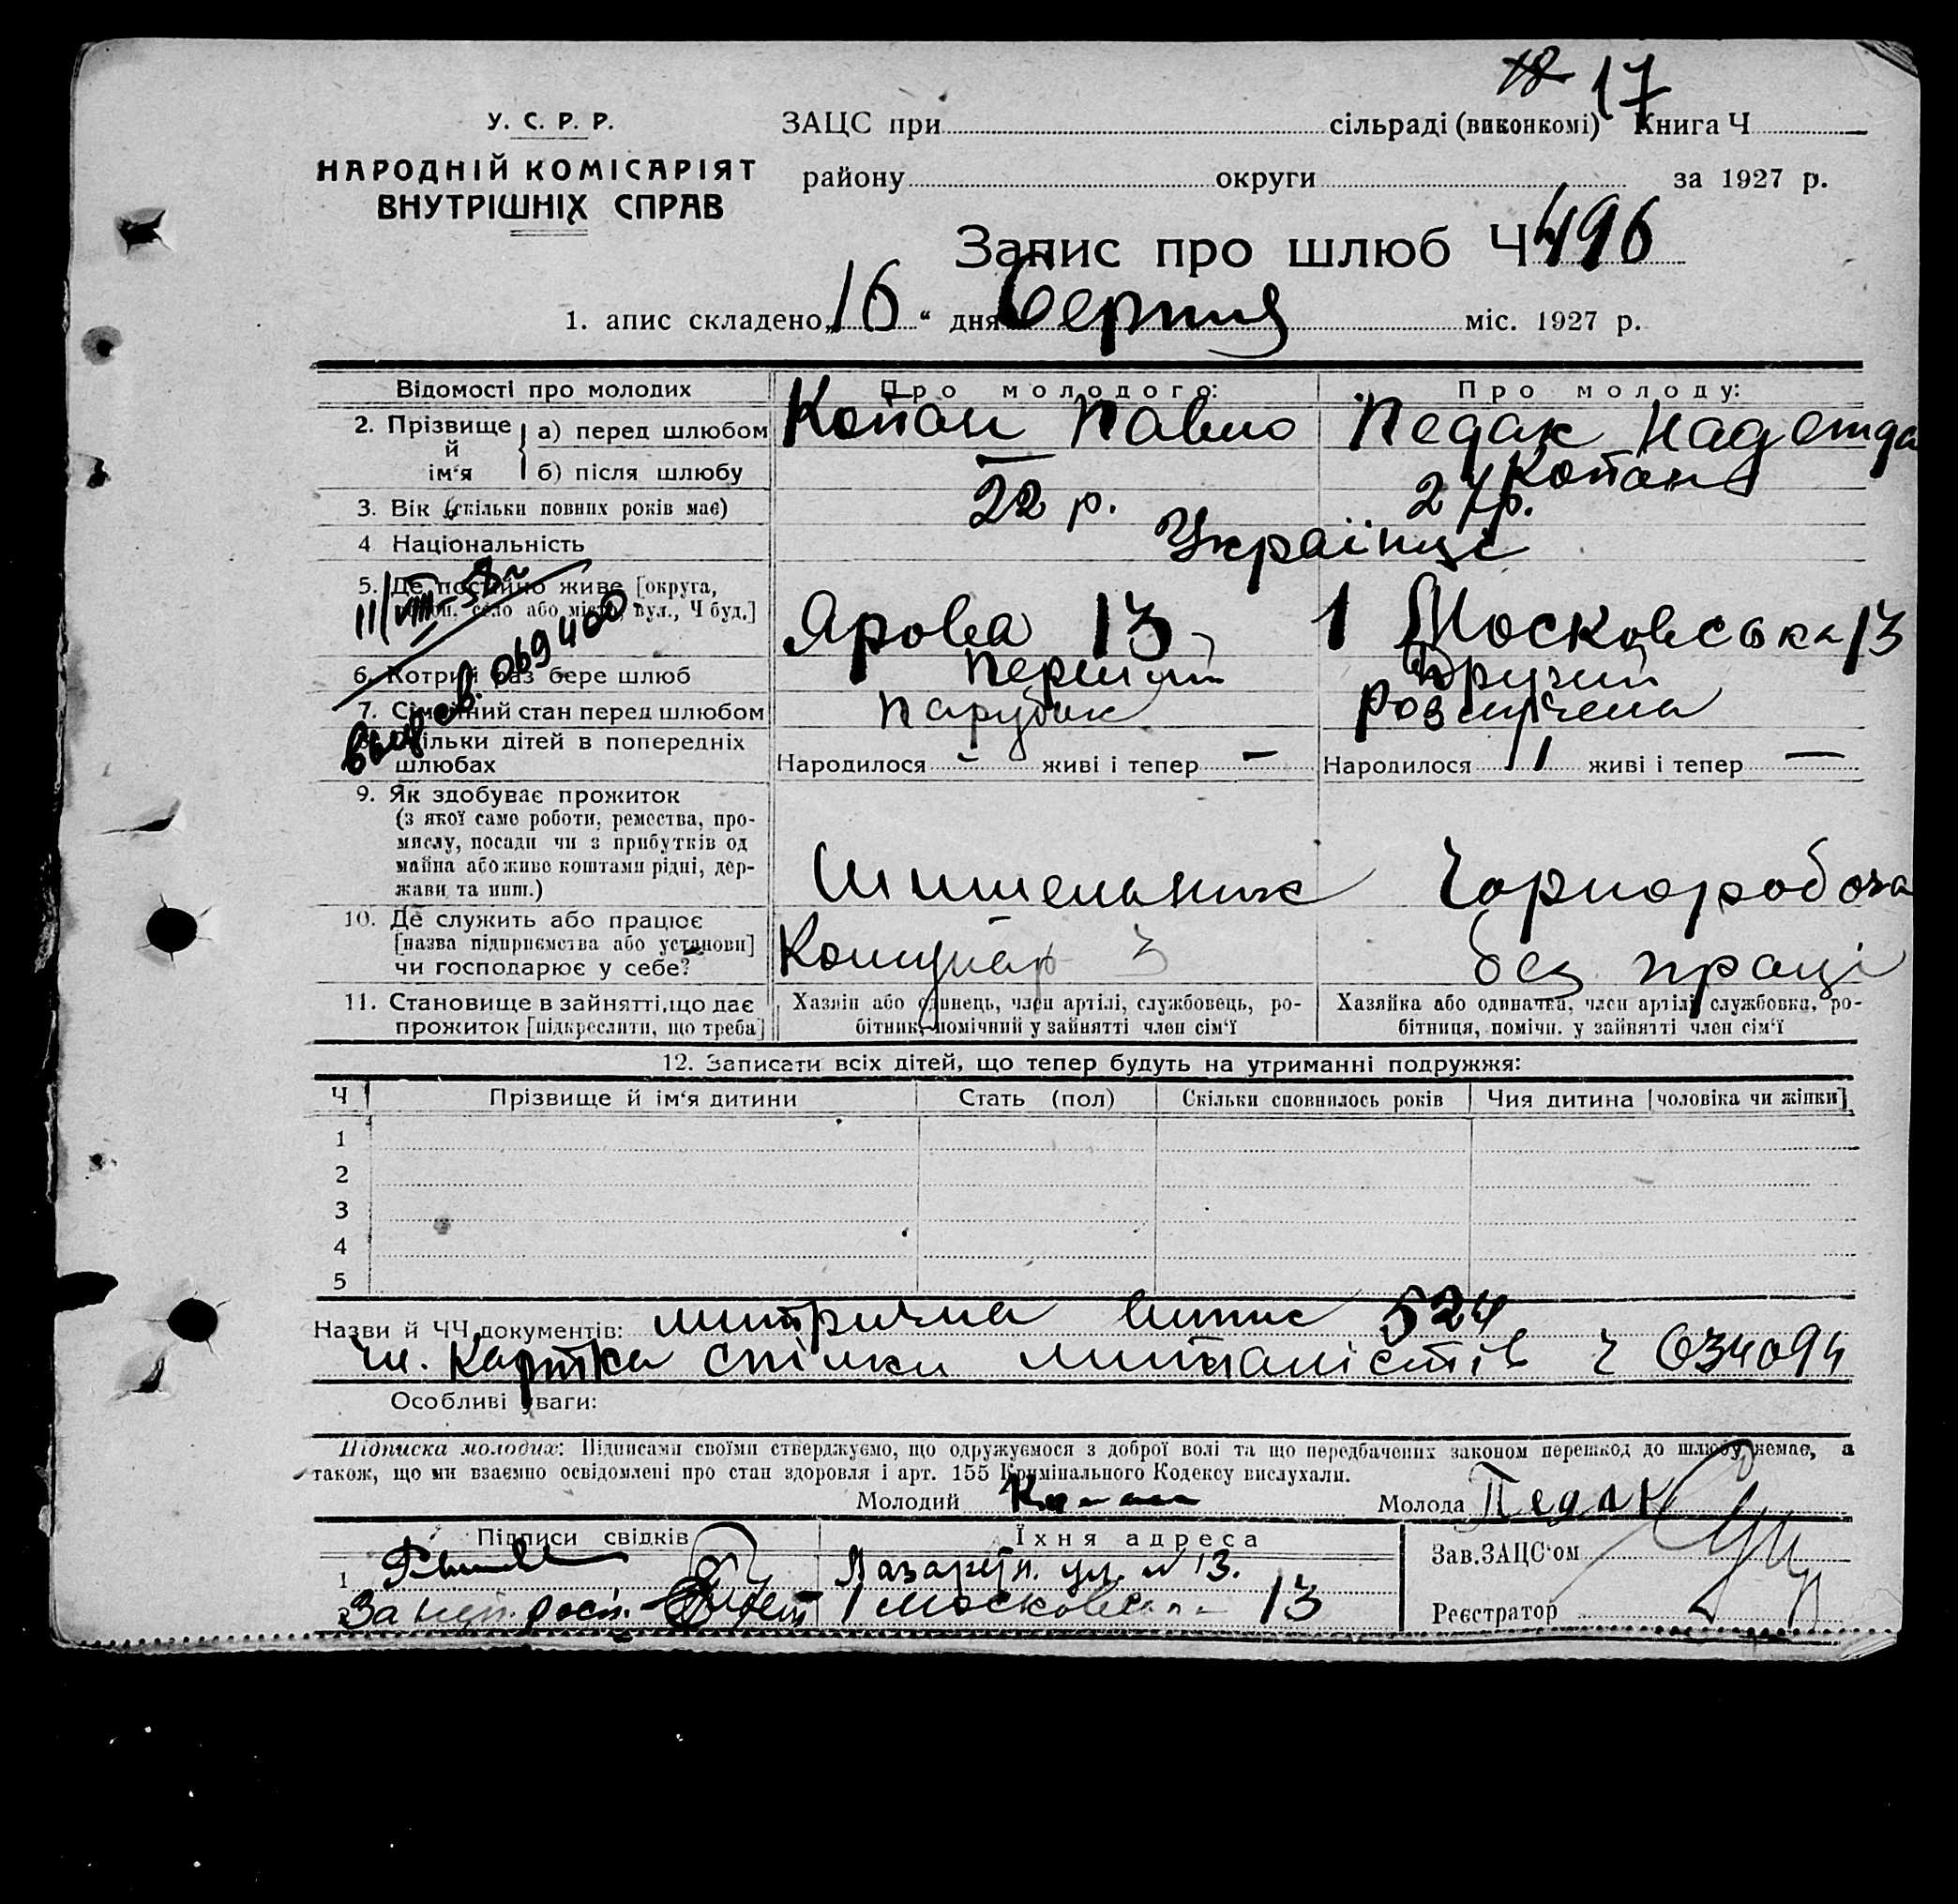 18 17
У. С. Р. Р.
НАРОДНІЙ КОМІСАРІЯТ
ВНУТРІШНІХ СПРАВ
ЗАЦС при сільраді (виконкомі) Книга Ч
району округи за 1927 р.
Запис про шлюб Ч 496
1. апис складено „16“ дня Серпня міс. 1927 р.
Відомості про молодих Про молодого: Про молоду:
2. Прізвище й ім‘я а) перед шлюбом Копан Павло Педак Надежда
б) після шлюбу — Копан
3. Вік (скільки повних років має) 22 р. 24 р.
4 Національність Українці
5. Де постійно живе [округа,
район. село або місто, вул., Ч буд.] Ярова 13 1 Московська 13
11/VIII-58г
069400
6. Котрий раз бере шлюб Перший Другий
7. Сімейний стан перед шлюбом Парубок Розлучена
8. Скільки дітей в попередніх
шлюбах Народилося — живі і тепер — Народилося 1 живі і тепер —
9. Як здобуває прожиток
(з якої саме роботи, ремества, про-
мислу, посади чи з прибутків од
майна або живе коштами рідні, дер-
жави та инш.) Шишельник Чорноробоча
10. Де служить або працює
[назва підприємства або установи]
чи господарює у себе? Комунар З без праці
11. Становище в зайнятті, що дає
прожиток [підкреслити, що треба]
Хазяїн або одинець, член артілі, службовець, ро-
бітник, помічний у зайнятті член сім‘ї
Хазяйка або одиначка, член артілі, службовка, ро-
бітниця, помічн. у зайнятті член сім‘ї
12. Записати всіх дітей, що тепер будуть на утриманні подружжя:
Ч Прізвище й ім‘я дитини Стать (пол) Скільки сповнилось років Чия дитина [чоловіка чи жінки]
1
2
3
4
5
Назви й ЧЧ документів: митрична випис 524
чл. Картка спілки митталістів Ч 034094
Особливі уваги:
Підписка молодих: Підписами своїми стверджуємо, що одружуємося з доброї волі та що передбачених законом перешкод до шлюбу немає, а
також, що ми взаємно освідомлені про стан здоровля і арт. 155 Кримінального Кодексу вислухали.
Молодий Копан Молода Педак
Підписи свідків Їхня адреса
1 Лазаретн. ул. № 13.
2 1 Московська 13
Зав. ЗАЦС‘ом
Реєстратор